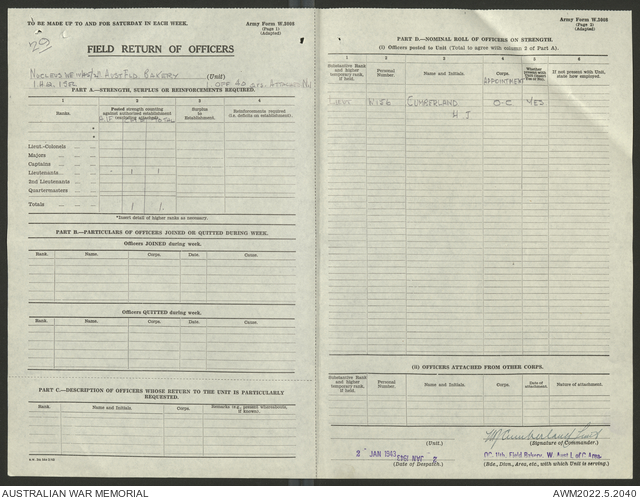 TO BE MADE UP TO AND FOR SATURDAY IN EACH WEEK.
Army Form W.3008
(Page 1)
(Adapted)
FIELD RETURN OF OFFICERS
AUST FLD BAKERY (Unit)
PART A.—STRENGTH, SURPLUS OR REINFORCEMENTS REQUIRED.
1 2 3 4
Ranks.
Posted strength counting against authorized establishment (excluding attached).
Surplus to Establishment.
Reinforcements required (i.e. deficits on establishment)
Lieut-Colonels
Majors
Captains
Lieutenants 1 1
2nd Lieutenants
Quartermasters
Totals 1 1
*Insert detail of higher ranks as necessary.
PART B.—PARTICULARS OF OFFICERS JOINED OR QUITTED DURING WEEK.
Officers JOINED during week.
Rank. Name. Corps. Date. Cause.
Officers QUITTED during week.
Rank. Name. Corps. Date. Cause.
PART C.—DESCRIPTION OF OFFICERS WHOSE RETURN TO THE UNIT IS PARTICULARLY REQUESTED.
Rank. Name and Initials. Corps. Remarks (e.g., present whereabouts, if known).
Army Form W.3008
(Page 2)
(Adapted)
PART D.—NOMINAL ROLL OF OFFICERS ON STRENGTH.
(i) Officers posted to Unit (Total to agree with column 2 of Part A).
1 2 3 4 5 6
Substantive Rank and higher temporary rank, if held.
Personal Number.
Name and Initials.
Corps.
APPOINTMENT
Whether present with Unit
If not present with Unit, state how employed.
CUMBERLAND O-C YES
H J
(ii) OFFICERS ATTACHED FROM OTHER CORPS.
Substantive Rank and higher temporary rank, if held.
Personal Number.
Name and Initials.
Corps.
Date of attachment.
Nature of attachment.
HJ Cumberland Lieut
(Unit.) (Signature of Commander.)
2 JAN 1943
OC. 11th. Field Bakery, W. Aust L of C Area
(Date of Despatch.) (Bde., Divn., Area, etc., with which Unit is serving.)
AUSTRALIAN WAR MEMORIAL
AWM2022.5.2040